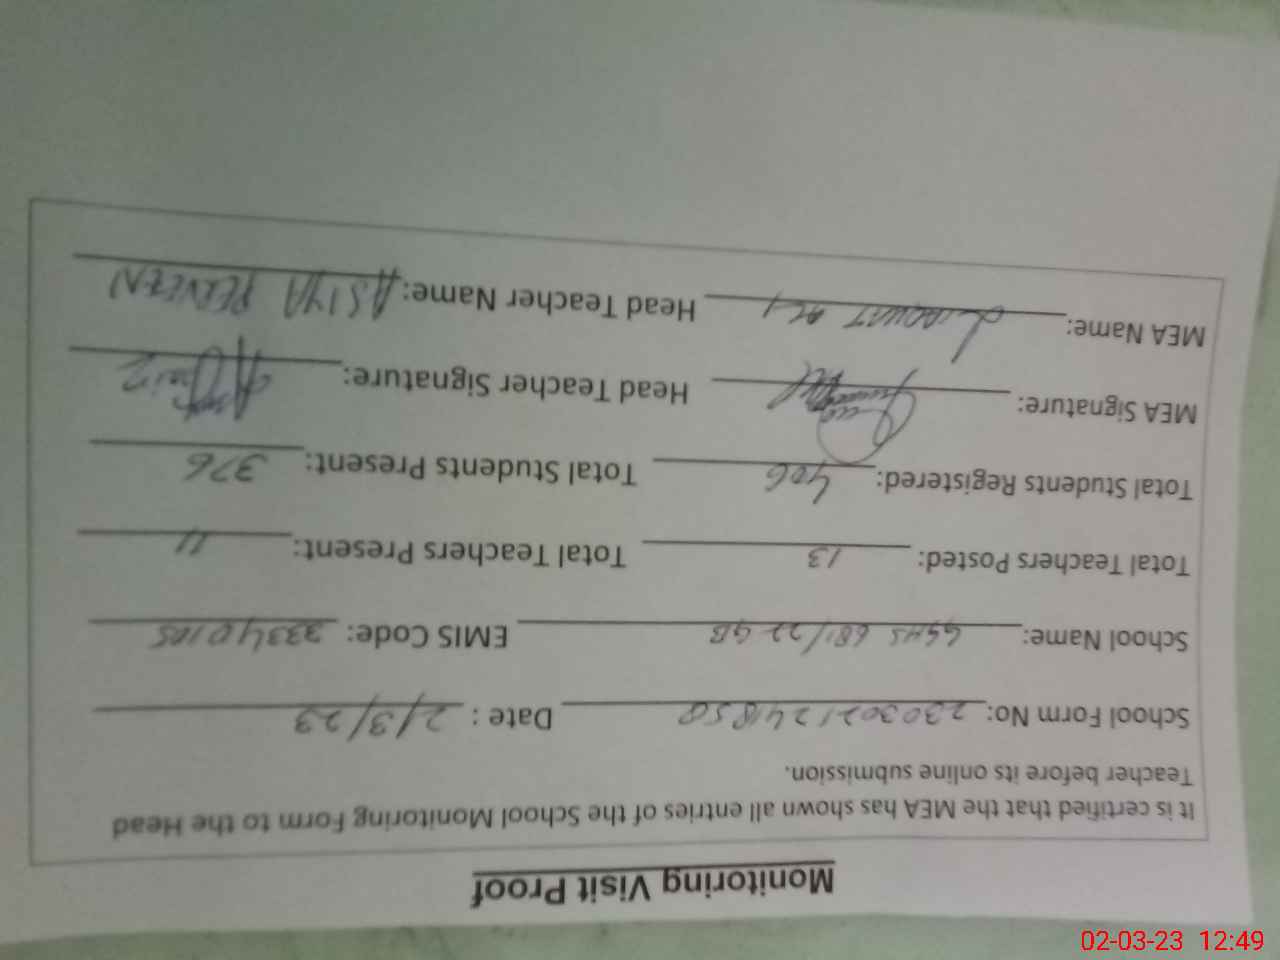 Monitoring Visit Proof
It is certified that the MEA has shown all entries of the School Monitoring Form to the Head
Teacher before its online submission.
School Form No: 230302124850 Date : 2/3/23
School Name: GGHS 681/22 GB EMIS Code: 33340105
Total Teachers Posted: 13 Total Teachers Present: 11
Total Students Registered: 406 Total Students Present: 376
MEA Signature: Head Teacher Signature:
MEA Name: LIAQUAT ALI Head Teacher Name: ASIYA PERVEEN
02-03-23 12:49